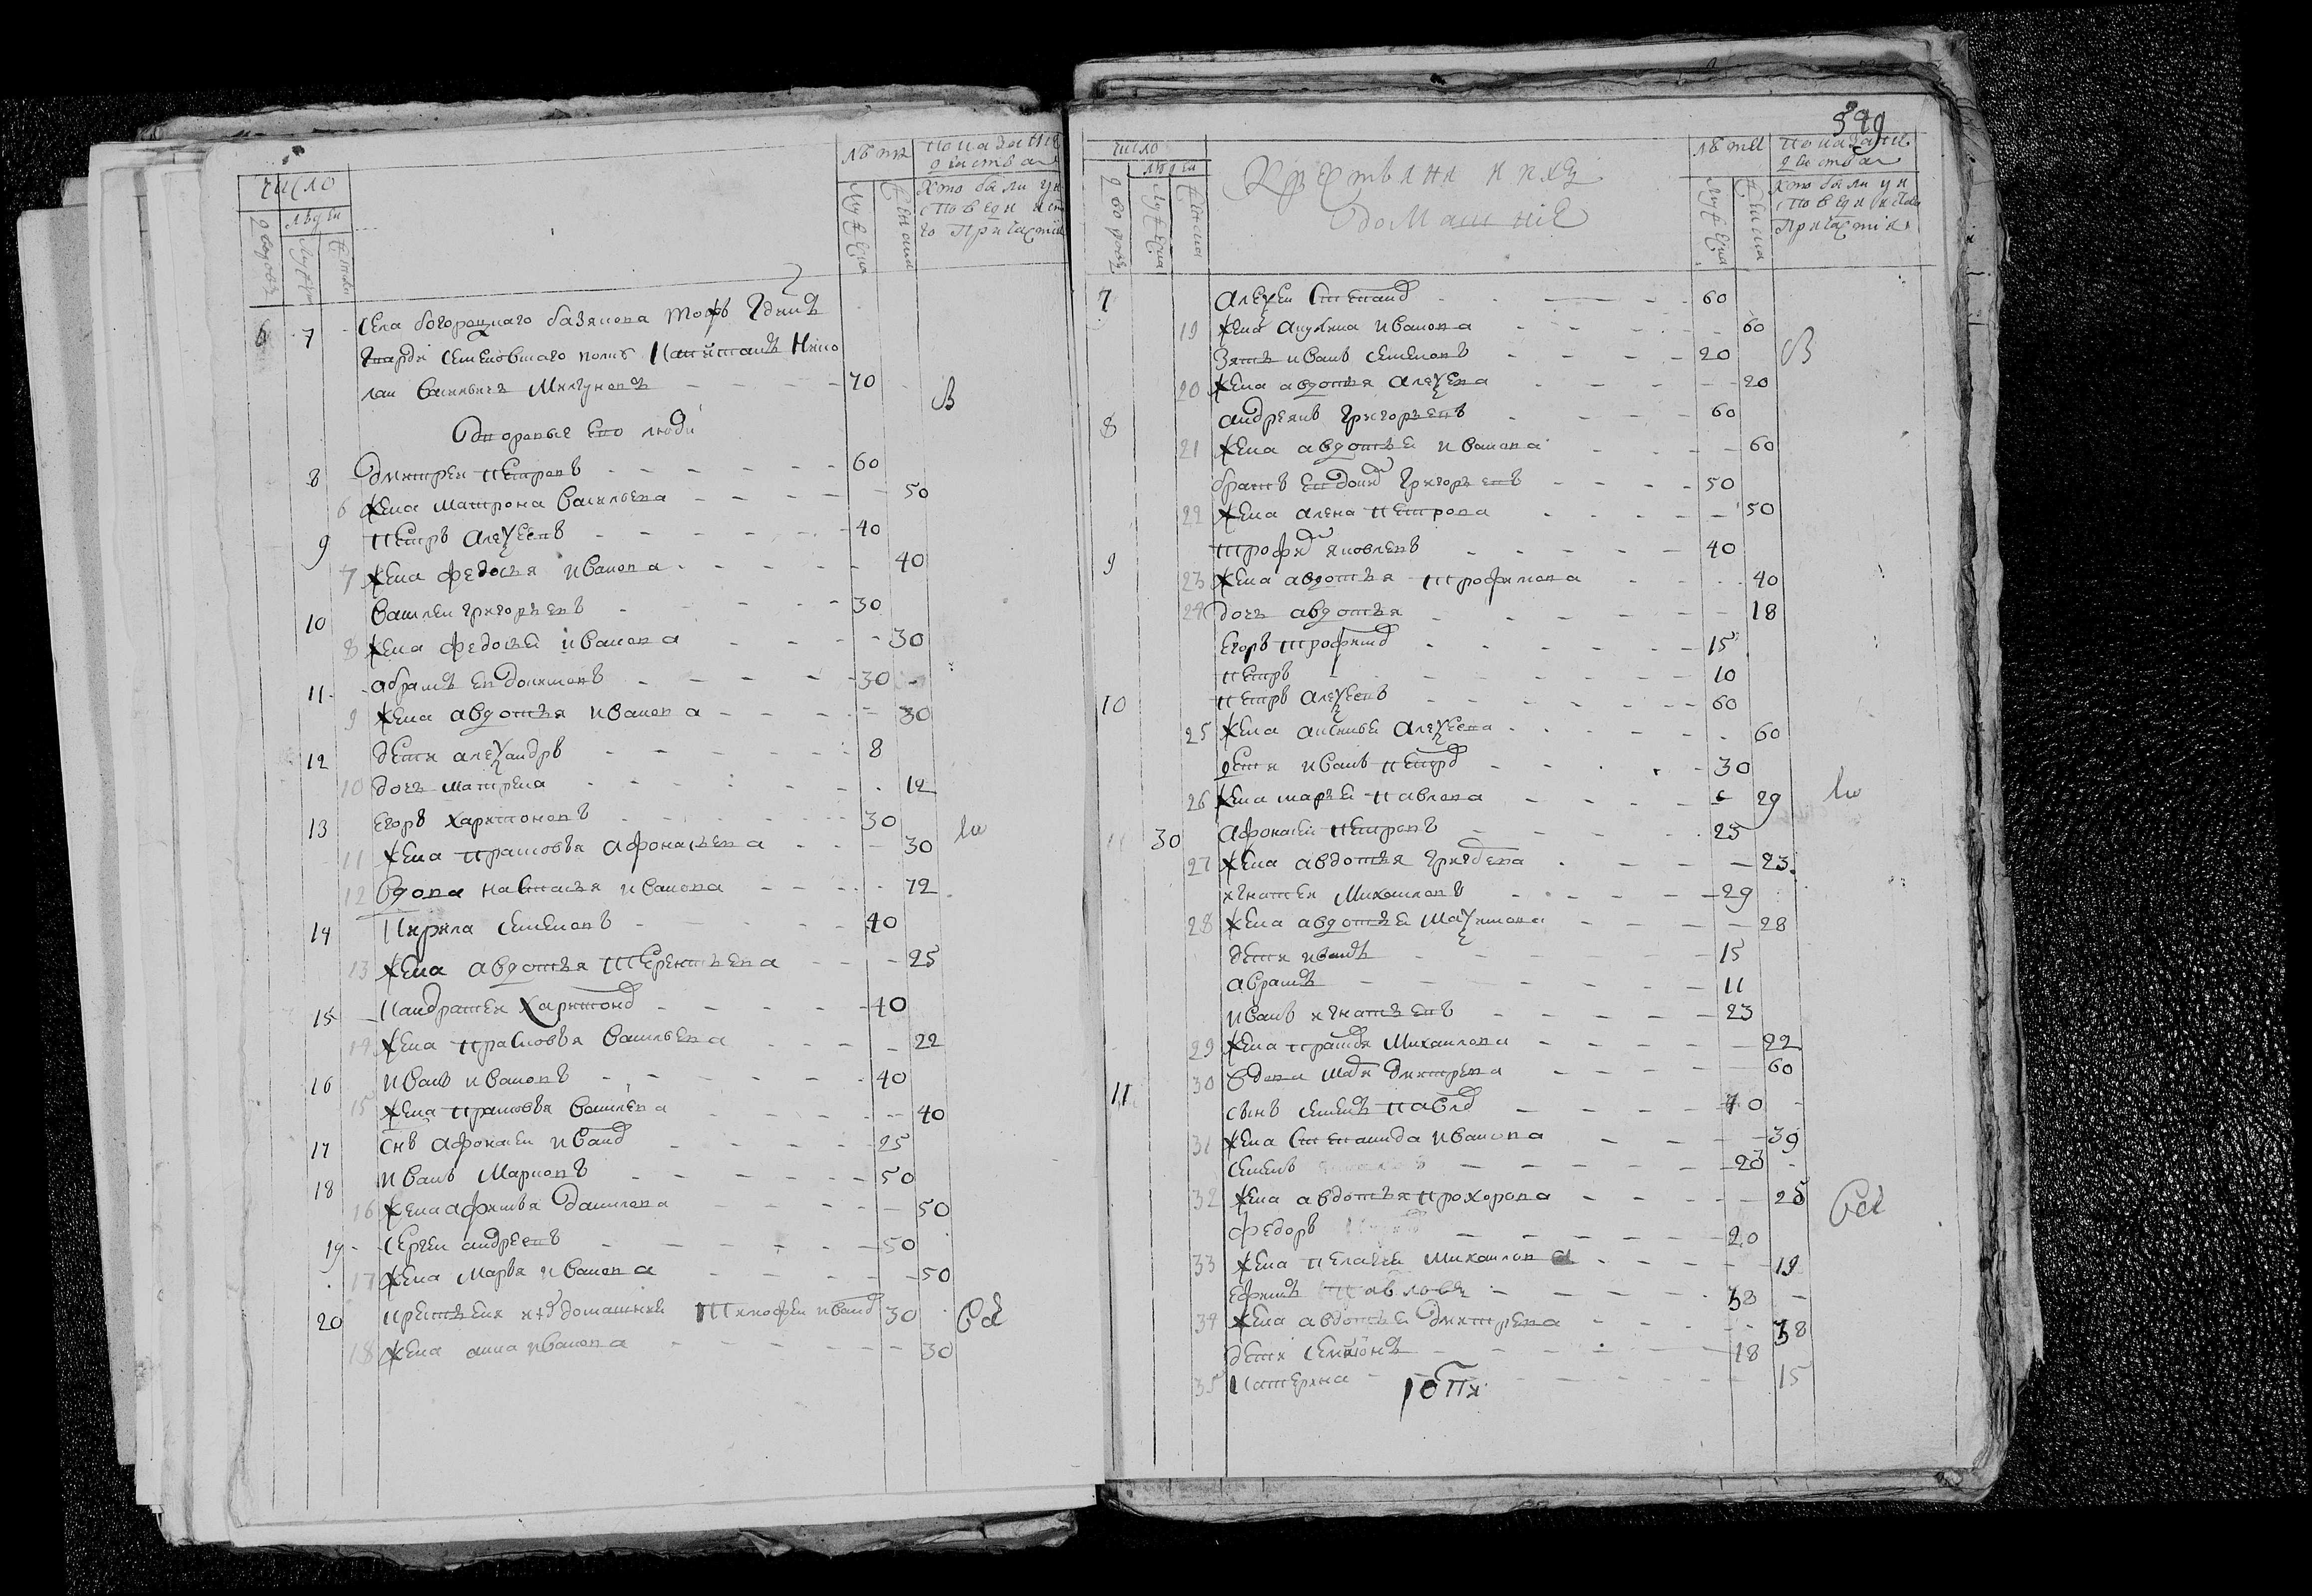 число
лѣтъ
показание
действа
дворовъ
людей
мужеска
женска
мужеска
женска
хто были у и
споведи и св
го Причастия
6 7 Села богородцкаго базякова тожъ
гвардіи семеновскаго полку Капитанъ Нико
лай Васильевъ Милгуновъ 70
Дворовые Ево люди
8 Дмитреи Петровъ 60
6 Жена матрона Васильева 50
9 Петръ Алеѯеевъ 40
7 Жена федосья Иванова 40
10 Василеи григорьевъ 30
8 Жена федосья иванова 30
11 абрамъ Евдокимовъ 30
9 Жена авдотья Иванова 30
12 дети алеѯандръ 8
10 дочь матрена 12
13 Егоръ харитоновъ 30
11 Жена прасковья афонасьева 30
12 Вдова настасья иванова 72
14 Кирила семеновъ 40
13 Жена авдотья терентьева 25
15 Кандратеи харитонов 40
14 Жена прасковья васильева 22
16 Иванъ ивановъ 40
15 Жена прасковья васильева 40
17 снъ афонасеи иванов 25
18 Иванъ Марковъ 50
16 Жена афимья данилова 50
19 Сергеи андреевъ 50
17 Жена марья иванова 50
20 крестьяня ихъ домашнии Тимофеи иванов 30
18 Жена анна иванова 30
599
число
людеи
дворовъ
мужеска
женска
Крестьяня ихъ
домашние
лѣта
показание
действа
мужеска
женска
хто были у и
споведи и свта
Причастия
7 алеѯеи степанов 60
19 жена акулина иванова 60
Зять иванъ семеновъ 20
20 жена авдотья алеѯева 20
8 андреянъ григорьевъ 60
21 жена авдотья иванова 60
братъ Евдоким григорьевъ 50
22 жена алена петрова 50
9 трофим яковлевъ 40
23 жена авдотья трофимова 40
24 дочь авдотья 18
Егоръ трофимов 15
петръ 10
10 петръ алеѯеевъ 60
25 жена аксинья алеѯеева 60
дети иванъ петров 30
26 жена марья павлова 29
11 30 афонасеи петровъ 25
27 жена авдотья григорева 23
игнатеи михаиловъ 29
28 жена авдотья маѯимова 28
дети иванъ 15
аврамъ 11
иванъ игнатьевъ 23
29 жена прасковья михаилова 22
30 Вдова марья дмитрева 60
11 сынъ семенъ павлов 40
31 жена степанида иванова 39
семенъ 23
32 жена авдотья прохорова 25
федоръ 20
33 жена пелагея михаилова 19
ефимъ павловъ 38
34 жена авдотья дмитрева 38
дети семионъ 18
35 катерина 15